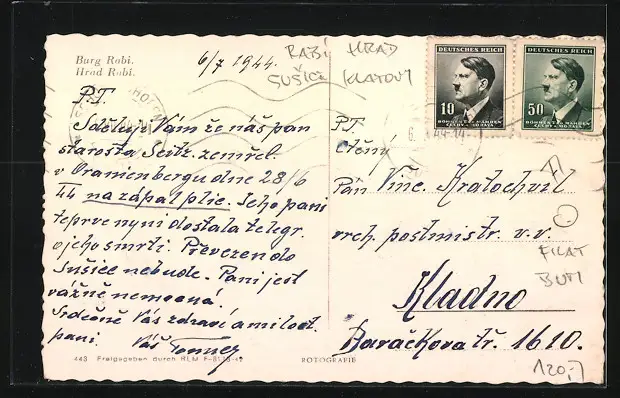 Burg Rabi.
Hrad Rabí.
6/7 1944.
RABÍ HRAD
SUŠICE KLATOVY
DEUTSCHES REICH
10
BÖHMEN U. MÄHREN
DEUTSCHES REICH
50
BÖHMEN U. MÄHREN
P.T.
Sděluji Vám že náš pan
starosta Seitz. zemřel
v Oranienbergu dne 28/6
44 na zápal plic. Jeho paní
teprve nyní dostala telegr.
o jeho smrti. Převezen do
Sušice nebude. Paní jest
vážně nemocná.
Srdečně Vás zdraví a milost.
paní. Váš
P.T.
ctěný
Pán Vinc. Kratochvíl
vrch. postmistr. v.v.
Kladno
Baračkova tř. 1610.
120,-
443 Freigegeben durch RLM
ROTOGRAFIE